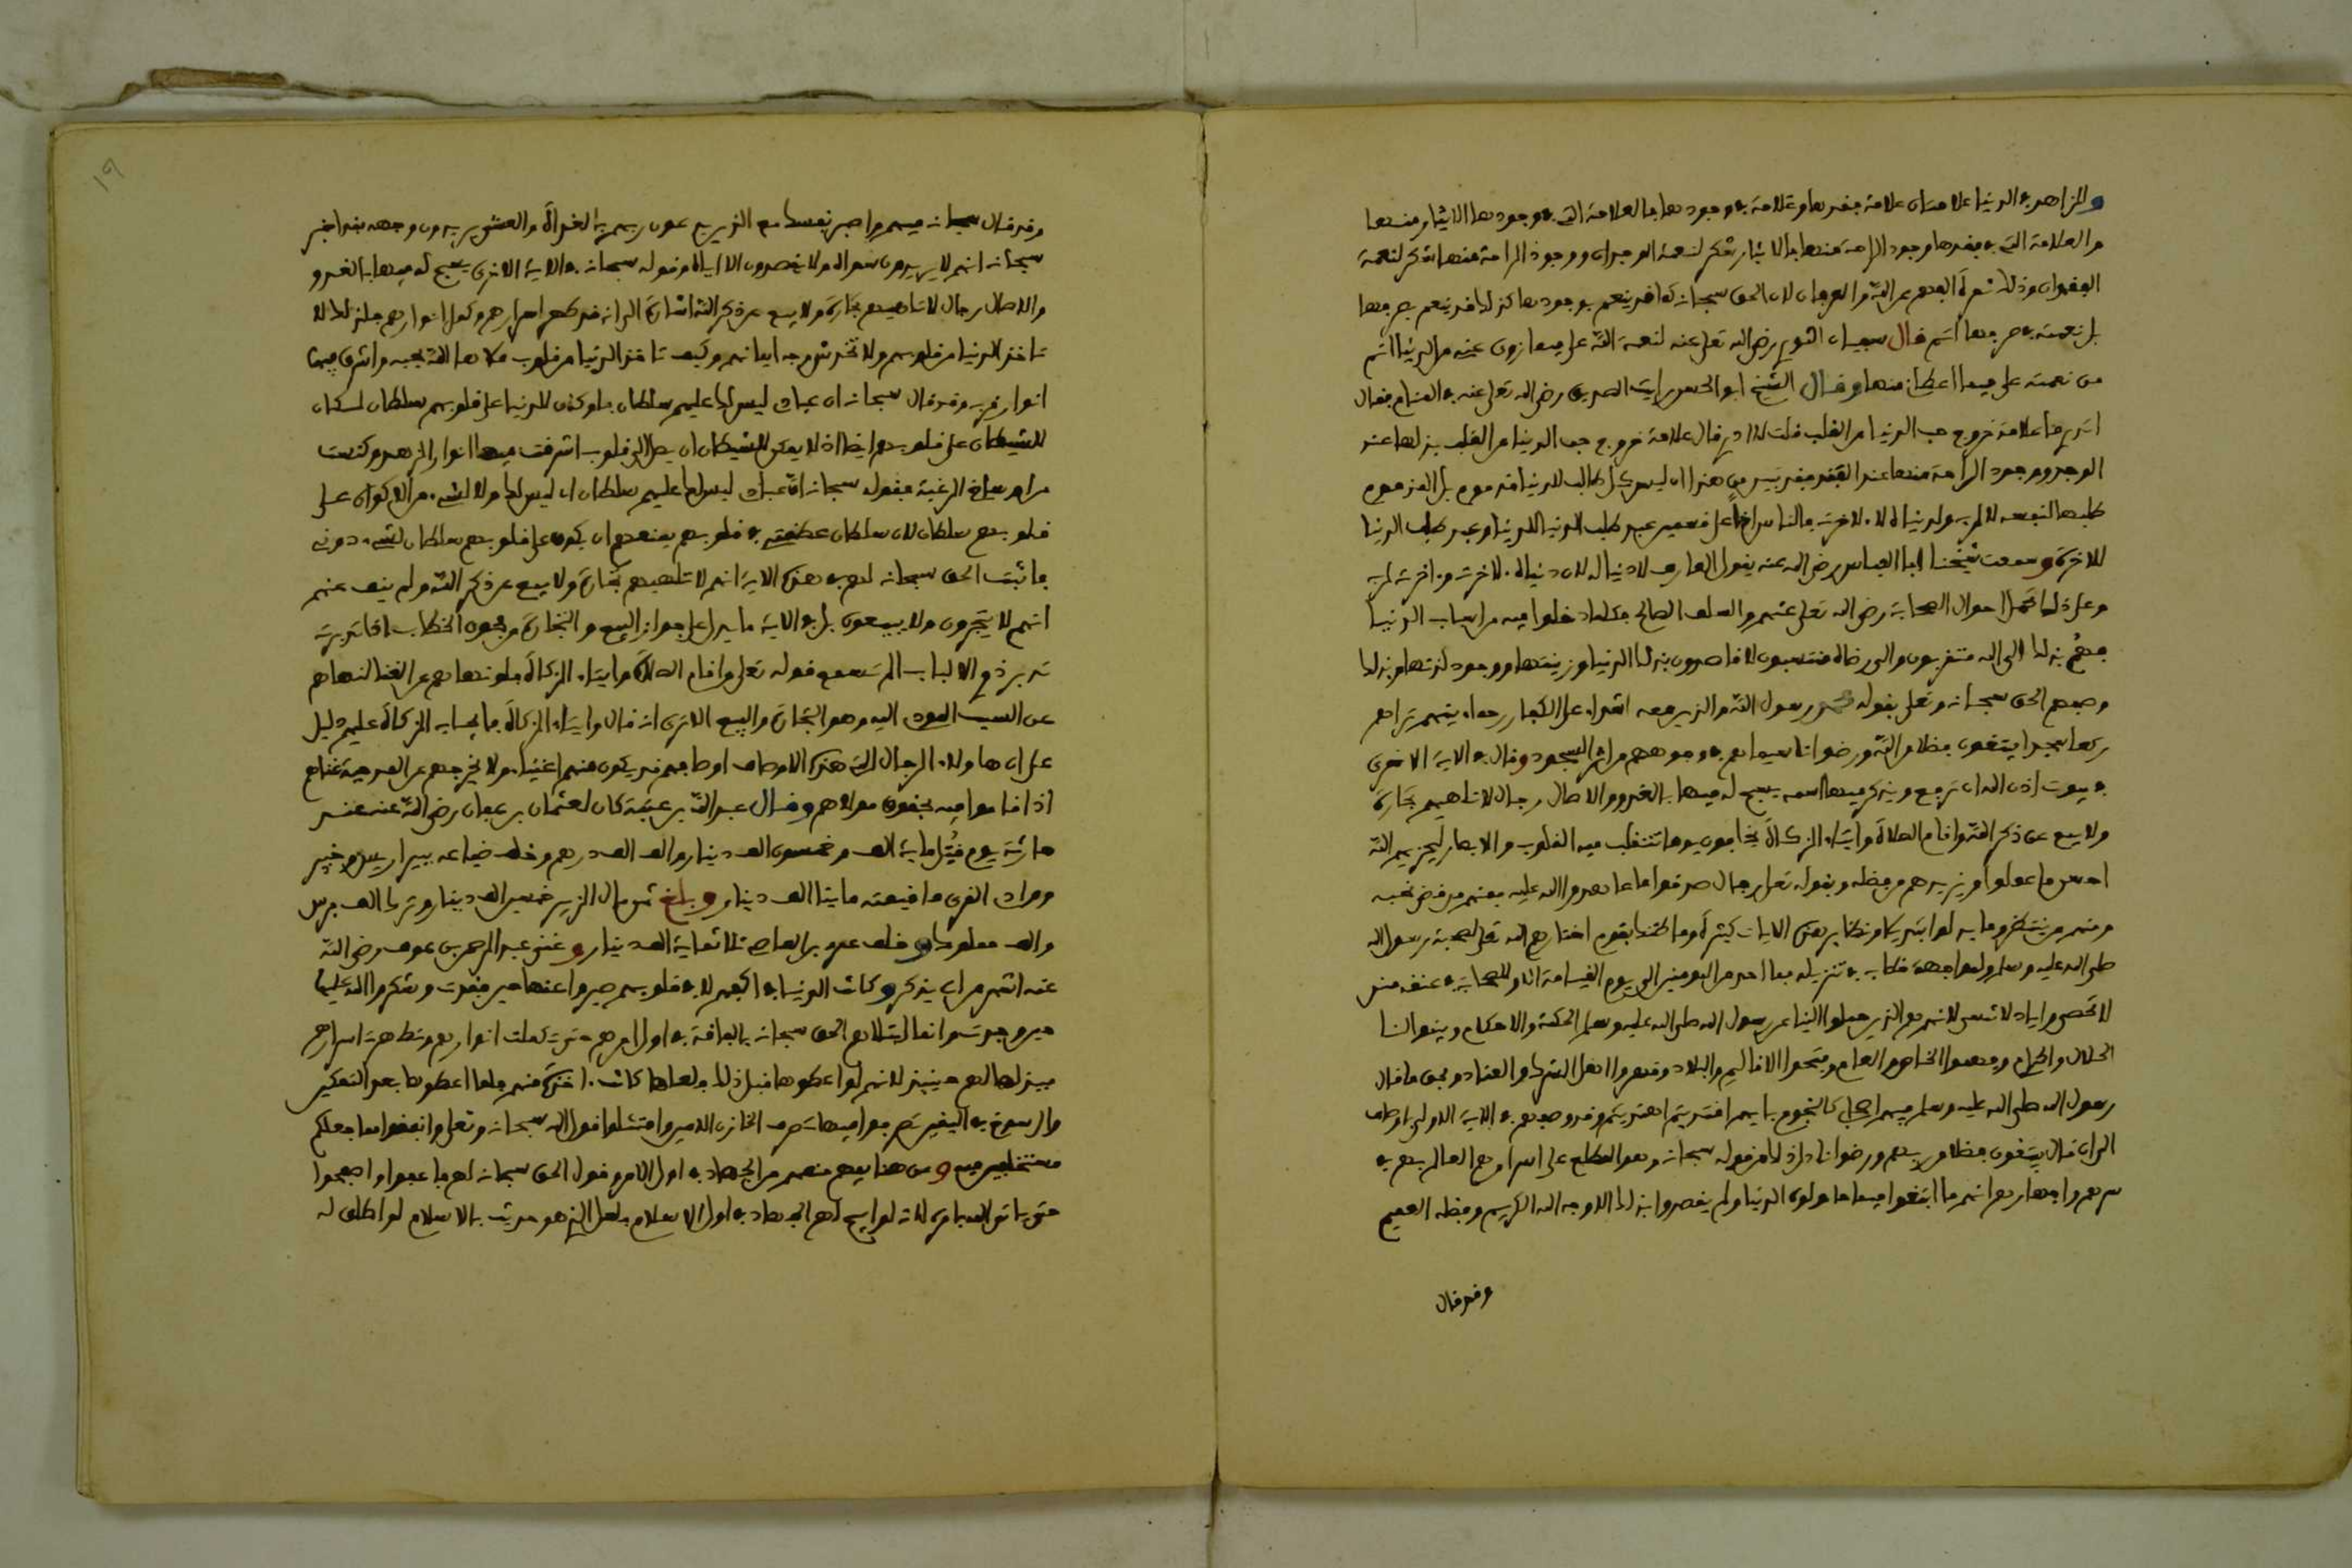 وللزاهد في الدنيا علامتان علامة في فقدها وعلامة في وجودها فالعلامة التي في وجودها الايثار منها
والعلامة التي في فقدها وجود الراحة منها فالايثار شكر لنعمة الوجدان ووجود الراحة منها شكر لنعمة
الفقدان وذلك ثمرة الفهم عن الله والعرفان لان الحق سبحانه كما قد ينعم بوجودها كذلك قد ينعم بصرفها
بل نعمته في صرفها اتم قال سفيان الثوري رضي الله تعلى عنه لنعمة الله علي فيما زوى عني من الدنيا اتم
من نعمته علي فيما اعطاني منها وقال الشيخ ابو الحسن رايت الصديق رضي الله تعلى عنه في المنام فقال
اتدري ما علامة خروج حب الدنيا من القلب قلت لا ادري قال علامة خروج حب الدنيا من القلب بذلها عند
الوجد ووجود الراحة منها عند الفقد فقد تبين من هذا ان ليس كل طالب للدنيا مذموم بل المذموم
طلبها لنفسه لا لربه ولدنياه لا لاخرته فالناس اذا على قسمين عبد طلب الدنيا للدنيا وعبد طلب الدنيا
للاخرة وسمعت شيخنا ابا العباس رضي الله عنه يقول العارف لا دنيا له لان دنياه لاخرته واخرته لربه
وعلى ذلك تحمل احوال الصحابة رضي الله تعلى عنهم والسلف الصالح فكلما دخلوا فيه من اسباب الدنيا
فهم بذلك الى الله متقربون والى رضاه منتسبون لا قاصدون بذلك الدنيا وزينتها ووجود لذتها وبذلك
وصفهم الحق سبحانه وتعلى بقوله محمد رسول الله والذين معه اشداء على الكفار رحماء بينهم تراهم
ركعا سجدا يبتغون فضلا من الله ورضوانا سيماهم في وجوههم من اثر السجود وقال في الاية الاخرى
في بيوت اذن الله ان ترفع ويذكر فيها اسمه يسبح له فيها بالغدو والاصال رجال لا تلهيهم تجارة
ولا بيع عن ذكر الله واقام الصلاة وايتاء الزكاة يخافون يوما تتقلب فيه القلوب والابصار ليجزيهم الله
احسن ما عملوا ويزيدهم من فضله وبقوله تعلى رجال صدقوا ما عاهدوا الله عليه فمنهم من قضى نحبه
ومنهم من ينتظر وما بدلوا تبديلا ونظاير هذه الايات كثيرة وما ظنك بقوم اختارهم الله تعلى لصحبة رسول الله
صلى الله عليه وسلم ولمواجهة خطابه في تنزيله فما احد من المومنين الى يوم القيامة الا وللصحابة في عنقه منن
لا تحصى واياد لا تنسى لانهم هم الذين حملوا الينا عن رسول الله صلى الله عليه وسلم الحكمة والاحكام وبينوا لنا
الحلال والحرام وفهموا الخاص والعام وفتحوا الاقاليم والبلاد وقهروا اهل الشرك والعناد وبحق ما قال
رسول الله صلى الله عليه وسلم فيهم اصحابي كالنجوم بايهم اقتديتم اهتديتم وقد وصفهم في الاية الاولى اوصاف
الى ان قال يبتغون فضلا من ربهم ورضوانا دل ذلك من قوله سبحانه وهو المطلع على اسرارهم العالم بهم في
سرهم واجهارهم انهم ما ابتغوا فيما حاولوه الدنيا ولم يقصدوا بذلك الا وجه الله الكريم وفضله العميم
وقد قال
١٩
وقد قال سبحانه فيهم واصبر نفسك مع الذين يدعون ربهم بالغداة والعشي يريدون وجهه فقد اخبر
سبحانه انهم لا يريدون سواه ولا يقصدون الا اياه وقوله سبحانه في الاية الاخرى يسبح له فيها بالغدو
والاصال رجال لا تلهيهم تجارة ولا بيع عن ذكر الله اشارة الى انه قد طهر اسرارهم وكمل انوارهم فلذلك لا
تاخذ الدنيا من قلوبهم ولا تخدش وجه ايمانهم وكيف تاخذ الدنيا من قلوب ملاها الله بحبه واشرق فيها
انوار قربه وقد قال سبحانه ان عبادي ليس لك عليهم سلطان فلو كان للدنيا على قلوبهم سلطان لكان
للشيطان على قلوبهم ايضا اذ لا يمكن للشيطان ان يصل الى قلوب اشرقت فيها انوار الزهد وكنست
من اوساخ الرغبة فقوله سبحانه ان عبادي ليس لك عليهم سلطان اي ليس لك ولا لشيء من الاكوان على
قلوبهم سلطان لان سلطان عظمتي في قلوبهم يمنعهم ان يكون على قلوبهم سلطان لشيء دوني
فاثبت الحق سبحانه لهم في هذه الاية انهم لا تلهيهم تجارة ولا بيع عن ذكر الله ولم ينف عنهم
انهم لا يتجرون ولا يبيعون بل في الاية ما يدل على جواز البيع والتجارة وفحوى الخطاب اذا تدبرته
تدبر ذوي الالباب الم تسمع قوله تعلى واقام الصلاة وايتاء الزكاة فلو نهاهم عن الغنا لنهاهم
عن السبب المودي اليه وهو التجارة والبيع الا ترى انه قال وايتاء الزكاة فايجاب الزكاة عليهم دليل
على ان هاولاء الرجال الذي هذه الاوصاف اوصافهم قد يكون منهم اغنياء ولا يخرجهم عن المدحة غناهم
اذا قاموا فيه بحقوق مولاهم وقال عبد الله بن عتبة كان لعثمان بن عفان رضي الله عنه عند
خازنه يوم قتل ماية الف وخمسون الف دينار والف الف درهم وخلف ضياعه ببير اريس وخيبر
ووادي القرى ما قيمته مايتا الف دينار وبلغ ثمن مال الزبير خمسين الف دينار وترك الف فرس
والف مملوك وخلف عمرو بن العاص ثلاثماية الف دينار وغنى عبد الرحمن بن عوف رضي الله
عنه اشهر من ان يذكر وكانت الدنيا في اكفهم لا في قلوبهم صبروا عنها حين فقدت وشكروا الله عليها
حين وجدت وانما ابتلاهم الحق سبحانه بالفاقة في اول امرهم حتى تكملت انوارهم وتطهرت اسرارهم
فبذلها لهم حينيذ لانهم لو اعطوها قبل ذلك فلعلها كانت اخذة منهم فلما اعطوها بعد التمكين
والرسوخ في اليقين تصرفوا فيها تصرف الخازن الامين وامتثلوا قول الله سبحانه وتعلى وانفقوا مما جعلكم
مستخلفين فيه ومن هنا يفهم منعهم من الجهاد في اول الامر وقول الحق سبحانه لهم فاعفوا واصفحوا
حتى ياتي الله بامره لانه لو ابيح لهم الجهاد في اول الاسلام فلعل الذي هو حديث بالاسلام لو اطلق له